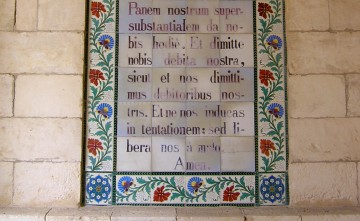 Panem nostrum super-
substantialem da no-
bis hodie. Et dimitte
nobis debita nostra,
sicut et nos dimitti-
mus debitoribus nos-
tris. Et ne nos inducas
in tentationem: sed li-
bera nos a malo.
Amen.